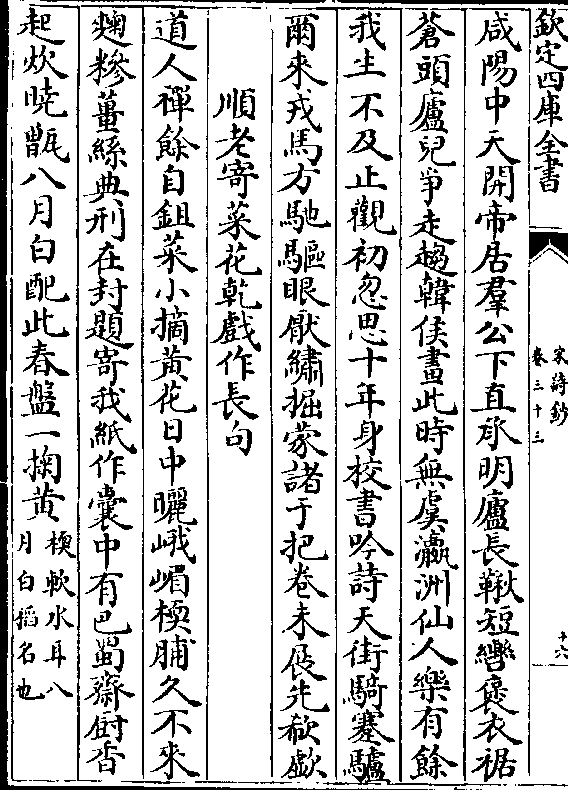 欽定四庫全書
宋詩鈔
卷三十三
十六
咸陽中天開帝居羣公下直承明廬長鞦短轡褒衣裾
蒼頭廬兒爭走趨韓侯畫此時無虞瀛洲仙人樂有餘
我生不及止觀初忽思十年身校書吟詩天街騎蹇驢
爾來戎馬方馳驅眼厭繡掘蒙諸于把卷未展先欷歔
順老寄菜花乾戲作長句
道人禪餘自鉏菜小摘黃花日中曬峨嵋楧脯久不來
麴糝薑絲典刑在封題寄我紙作囊中有巴蜀齋厨香
起炊曉甑八月白配此春盤一掬黃楧軟水耳八
月白稻名也